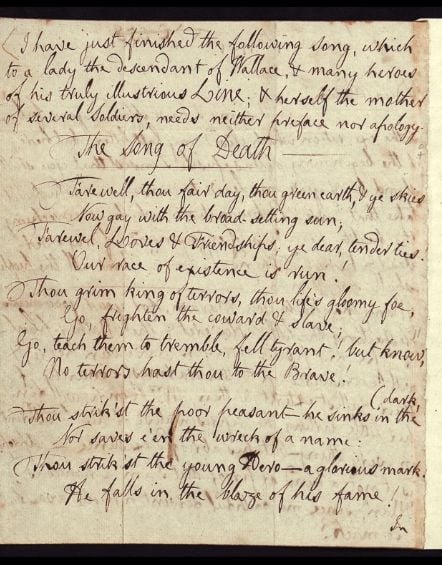 I have just finished the following song, which
to a lady the descendant of Wallace, & many heroes
of his truly illustrious Line; & herself the mother
of several Soldiers, needs neither preface nor apology.
The Song of Death
Farewell, thou fair day, thou green earth, & ye skies
Now gay with the broad setting sun;
Farewel, Loves & Friendships, ye dear, tender ties!
Our race of existence is run!
Thou grim king of terrors, thou life's gloomy foe,
Go, frighten the coward & slave;
Go, teach them to tremble, fell tyrant! but know,
No terrors hast thou to the Brave!
Thou strik'st the poor peasant — he sinks in the
(dark,
Nor saves e'en the wreck of a name:
Thou strik'st the young Hero — a glorious mark!
He falls in the blaze of his fame!
In